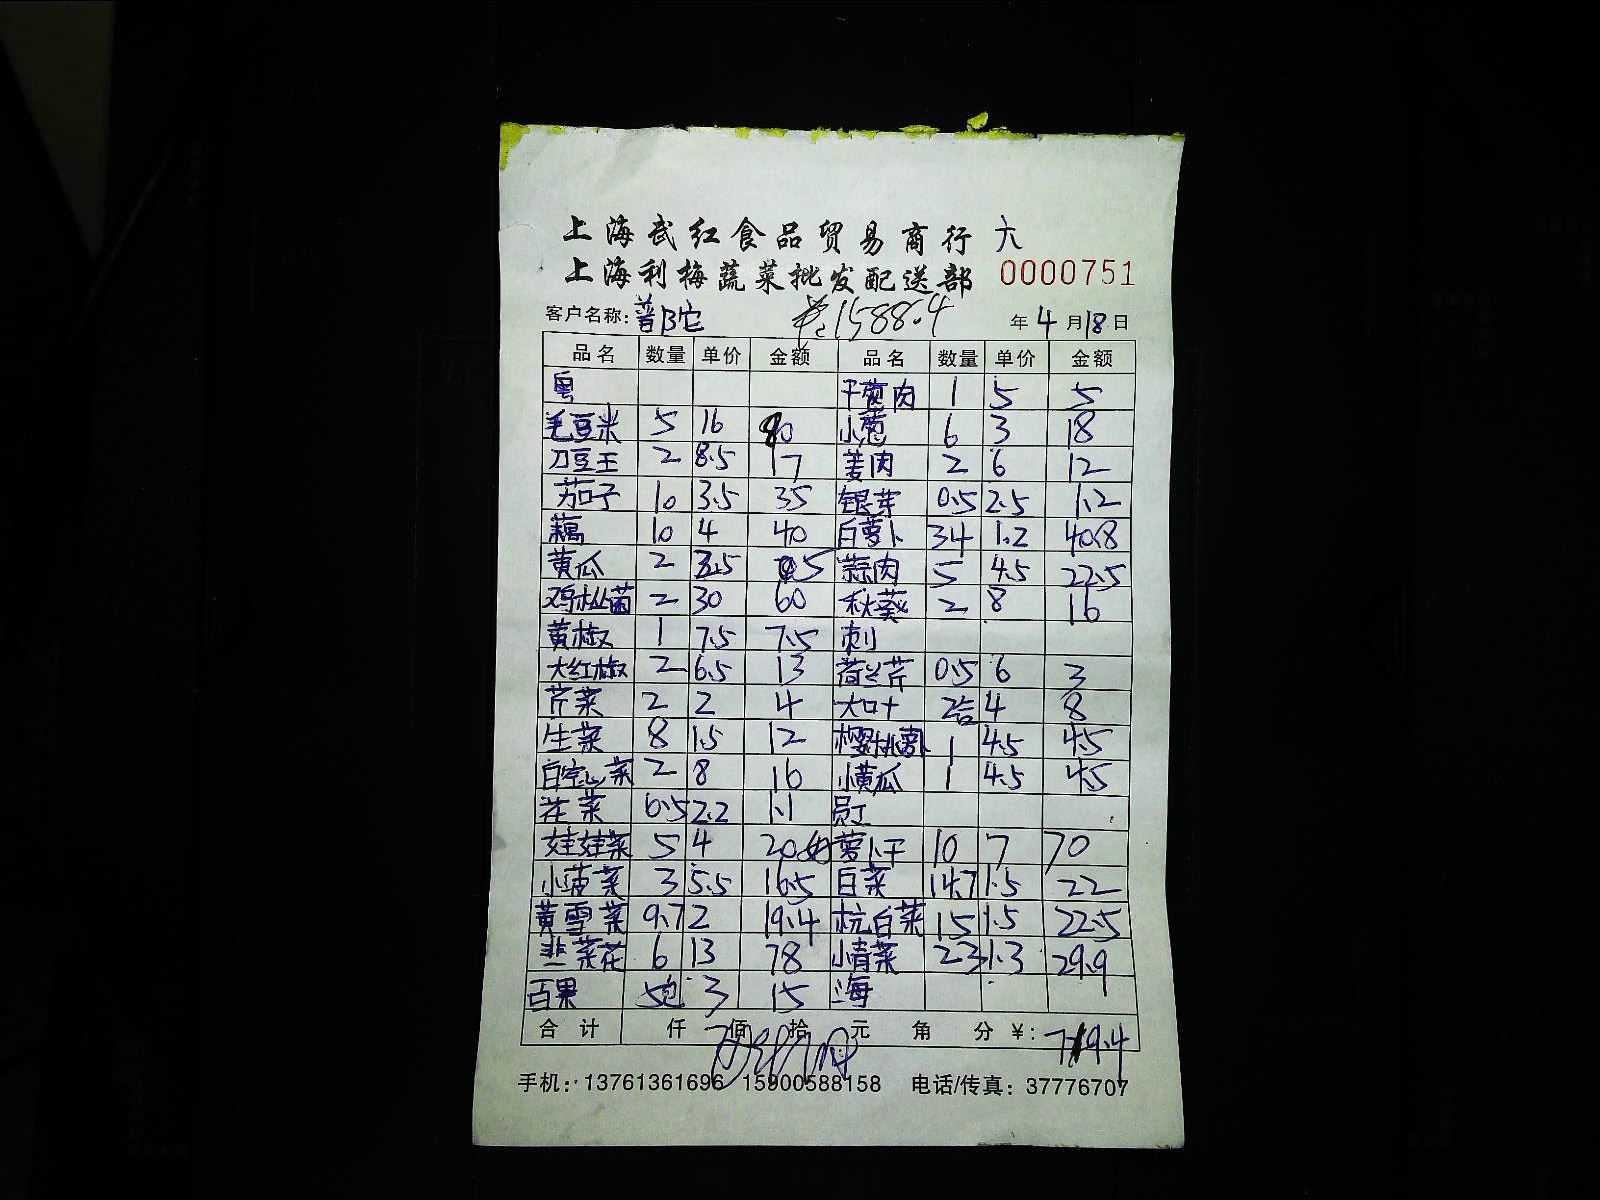 上海武红食品贸易商行 六
上海利梅蔬菜批发配送部 0000751
客户名称: 普陀 1588.4 年 4 月 18 日
品名 数量 单价 金额 品名 数量 单价 金额
粤 干葱肉 1 5 5
毛豆米 5 16 80 小葱 6 3 18
刀豆王 2 8.5 17 姜肉 2 6 12
茄子 10 3.5 35 银芽 0.5 2.5 1.2
藕 10 4 40 白萝卜 34 1.2 40.8
黄瓜 2 5 蒜肉 5 4.5 22.5
鸡枞菌 2 30 60 秋葵 2 8 16
黄椒 1 7.5 7.5 刺
大红椒 2 6.5 13 荷兰芹 0.5 6 3
芹菜 2 2 4 大叶 2合 4 8
生菜 8 1.5 12 樱桃萝卜 1 4.5 4.5
白空心菜 2 8 16 小黄瓜 1 4.5 4.5
花菜 0.5 2.2 1.1 员工
娃娃菜 5 4 20 萝卜干 10 7 70
小菠菜 3 5.5 16.5 白菜 14.7 1.5 22
黄雪菜 9.7 2 19.4 杭白菜 15 1.5 22.5
韭菜花 6 13 78 小青菜 23 1.3 29.9
百果 5包 3 15 海
合计 仟 佰 拾 元 角 分 ¥: 719.4
手机: 13761361696 15900588158 电话/传真: 37776707